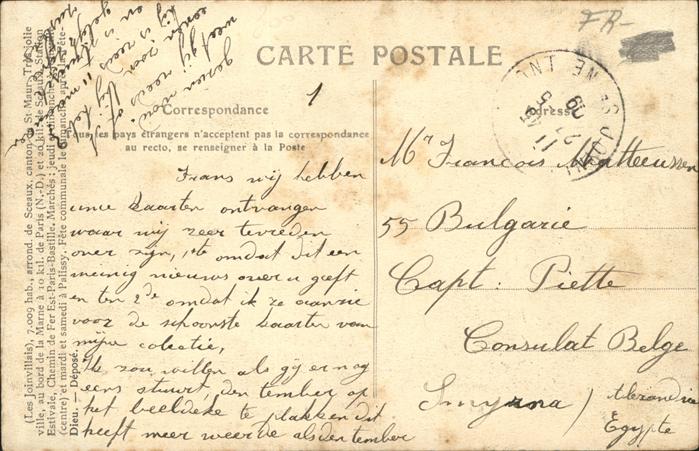 FR-
CARTE POSTALE
1
Correspondance
Adresse
Tous les pays étrangers n'acceptent pas la correspondance
au recto, se renseigner à la Poste
(Les Joinvillais), 7.009 hab., arrond. de Sceaux, canton St-Maur. Très jolie
ville, au bord de la Marne à 10 kil. de Paris (N.-D.) et 20 kil. de Sceaux. Station
Estivale, Chemin de Fer Est-Paris-Bastille. Marchés : jeudi dimanche
(centre) et mardi et samedi à Palissy. Fête communale le dimanche après la Pente-
Dieu. — Déposé.
Frans wij hebben
uwe kaarten ontvangen
waar wij zeer tevreden
over zijn, 1te omdat dit een
weinig nieuws over u geeft
en ten 2de omdat ik ze aanzie
voor de schoonste kaarten van
mijne colectie,
Ik zou willen als gij er nog
eens stuurt, den tember op
het beeldeke te plakken dit
heeft meer weerde als den tember
Mr François Matteeussen
55 Bulgarie
Capt : Piette
Consulat Belge
Smyrna / Alexandrie
Egypte